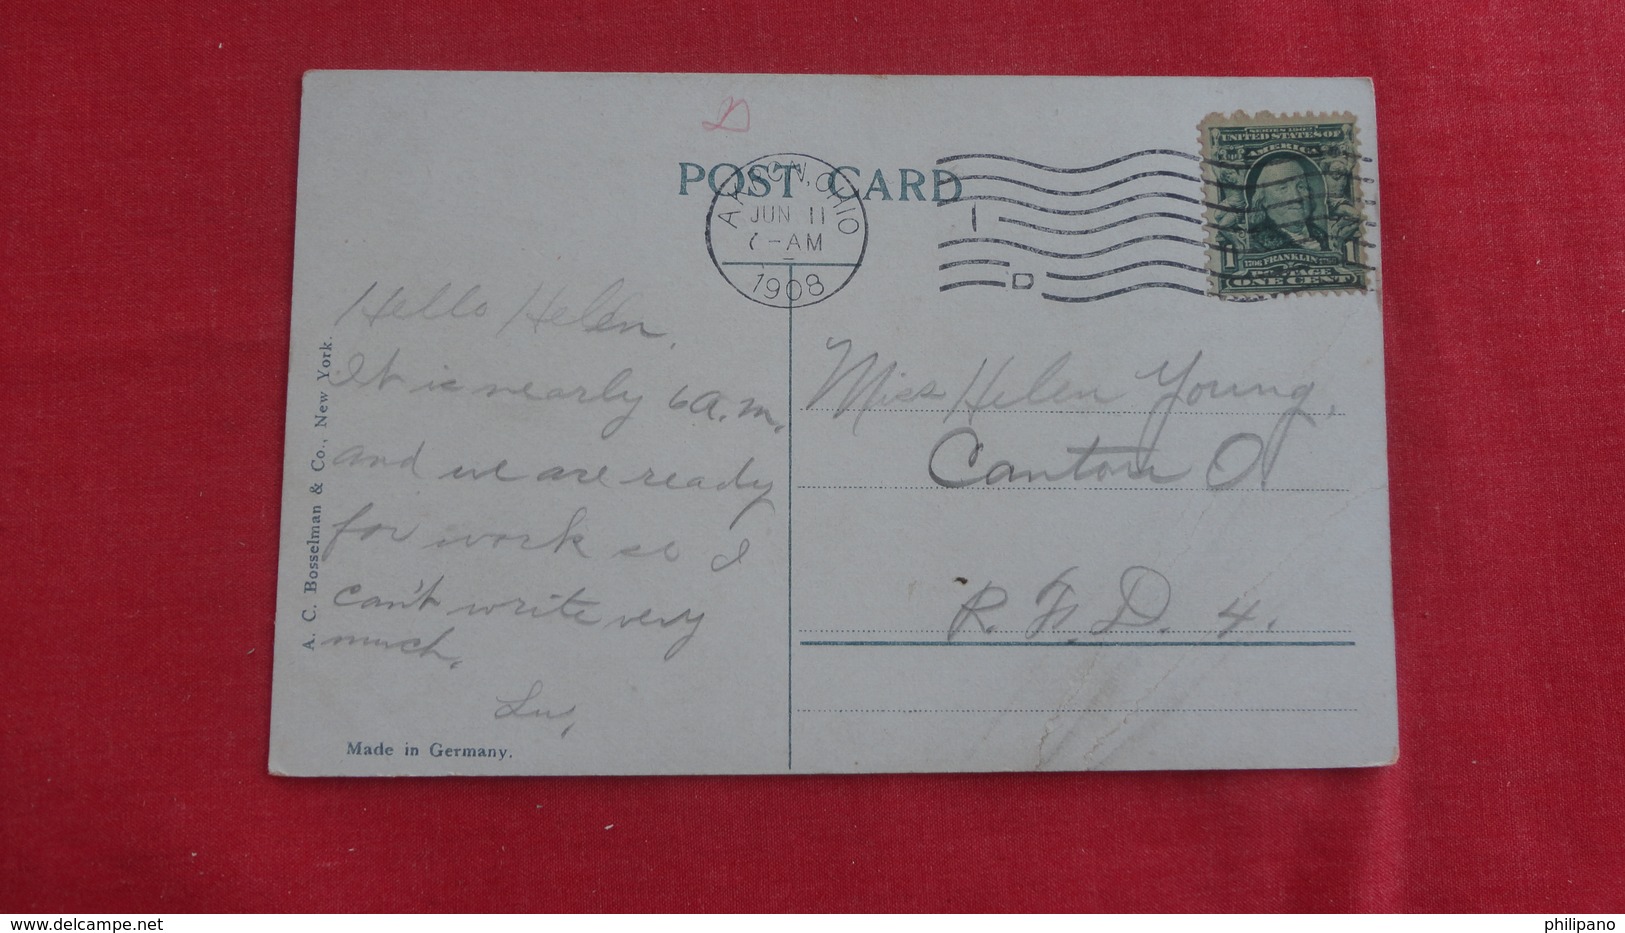 D
POST CARD
AKRON, OHIO
JUN 11
7-AM
1908
1
D
SERIES 1902
UNITED STATES OF
AMERICA
1 1
FRANKLIN
POSTAGE
ONE CENT
Hello Helen,
It is nearly 6 a.m.
and we are ready
for work so I
can't write very
much.
Lu,
Miss Helen Young,
Canton O.
R. F. D. 4.
A. C. Bosselman & Co., New York.
Made in Germany.
www.delcampe.net
philipano